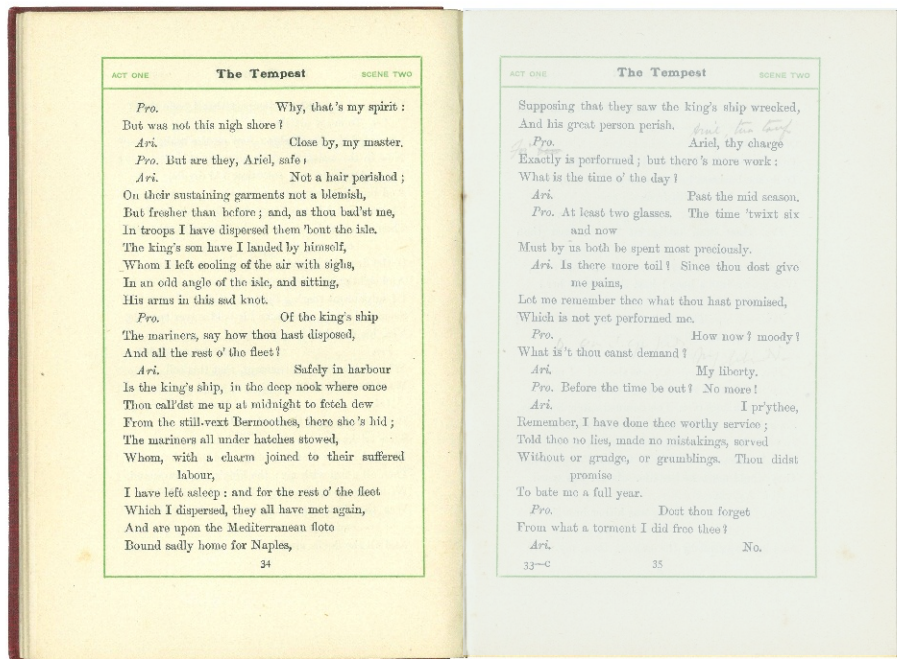 ACT ONE The Tempest SCENE TWO
Pro. Why, that's my spirit :
But was not this nigh shore ?
Ari. Close by, my master.
Pro. But are they, Ariel, safe ?
Ari. Not a hair perished ;
On their sustaining garments not a blemish,
But fresher than before ; and, as thou bad'st me,
In troops I have dispersed them 'bout the isle.
The king's son have I landed by himself,
Whom I left cooling of the air with sighs,
In an odd angle of the isle, and sitting,
His arms in this sad knot.
Pro. Of the king's ship
The mariners, say how thou hast disposed,
And all the rest o' the fleet ?
Ari. Safely in harbour
Is the king's ship, in the deep nook where once
Thou call'dst me up at midnight to fetch dew
From the still-vext Bermoothes, there she's hid ;
The mariners all under hatches stowed,
Whom, with a charm joined to their suffered
labour,
I have left asleep : and for the rest o' the fleet
Which I dispersed, they all have met again,
And are upon the Mediterranean flote
Bound sadly home for Naples,
34
ACT ONE The Tempest SCENE TWO
Supposing that they saw the king's ship wrecked,
And his great person perish.
Pro. Ariel, thy charge
Exactly is performed ; but there's more work :
What is the time o' the day ?
Ari. Past the mid season.
Pro. At least two glasses. The time 'twixt six
and now
Must by us both be spent most preciously.
Ari. Is there more toil ? Since thou dost give
me pains,
Let me remember thee what thou hast promised,
Which is not yet performed me.
Pro. How now ? moody ?
What is't thou canst demand ?
Ari. My liberty.
Pro. Before the time be out ? No more !
Ari. I pr'ythee,
Remember, I have done thee worthy service ;
Told thee no lies, made no mistakings, served
Without or grudge, or grumblings. Thou didst
promise
To bate me a full year.
Pro. Dost thou forget
From what a torment I did free thee ?
Ari. No.
33—C 35